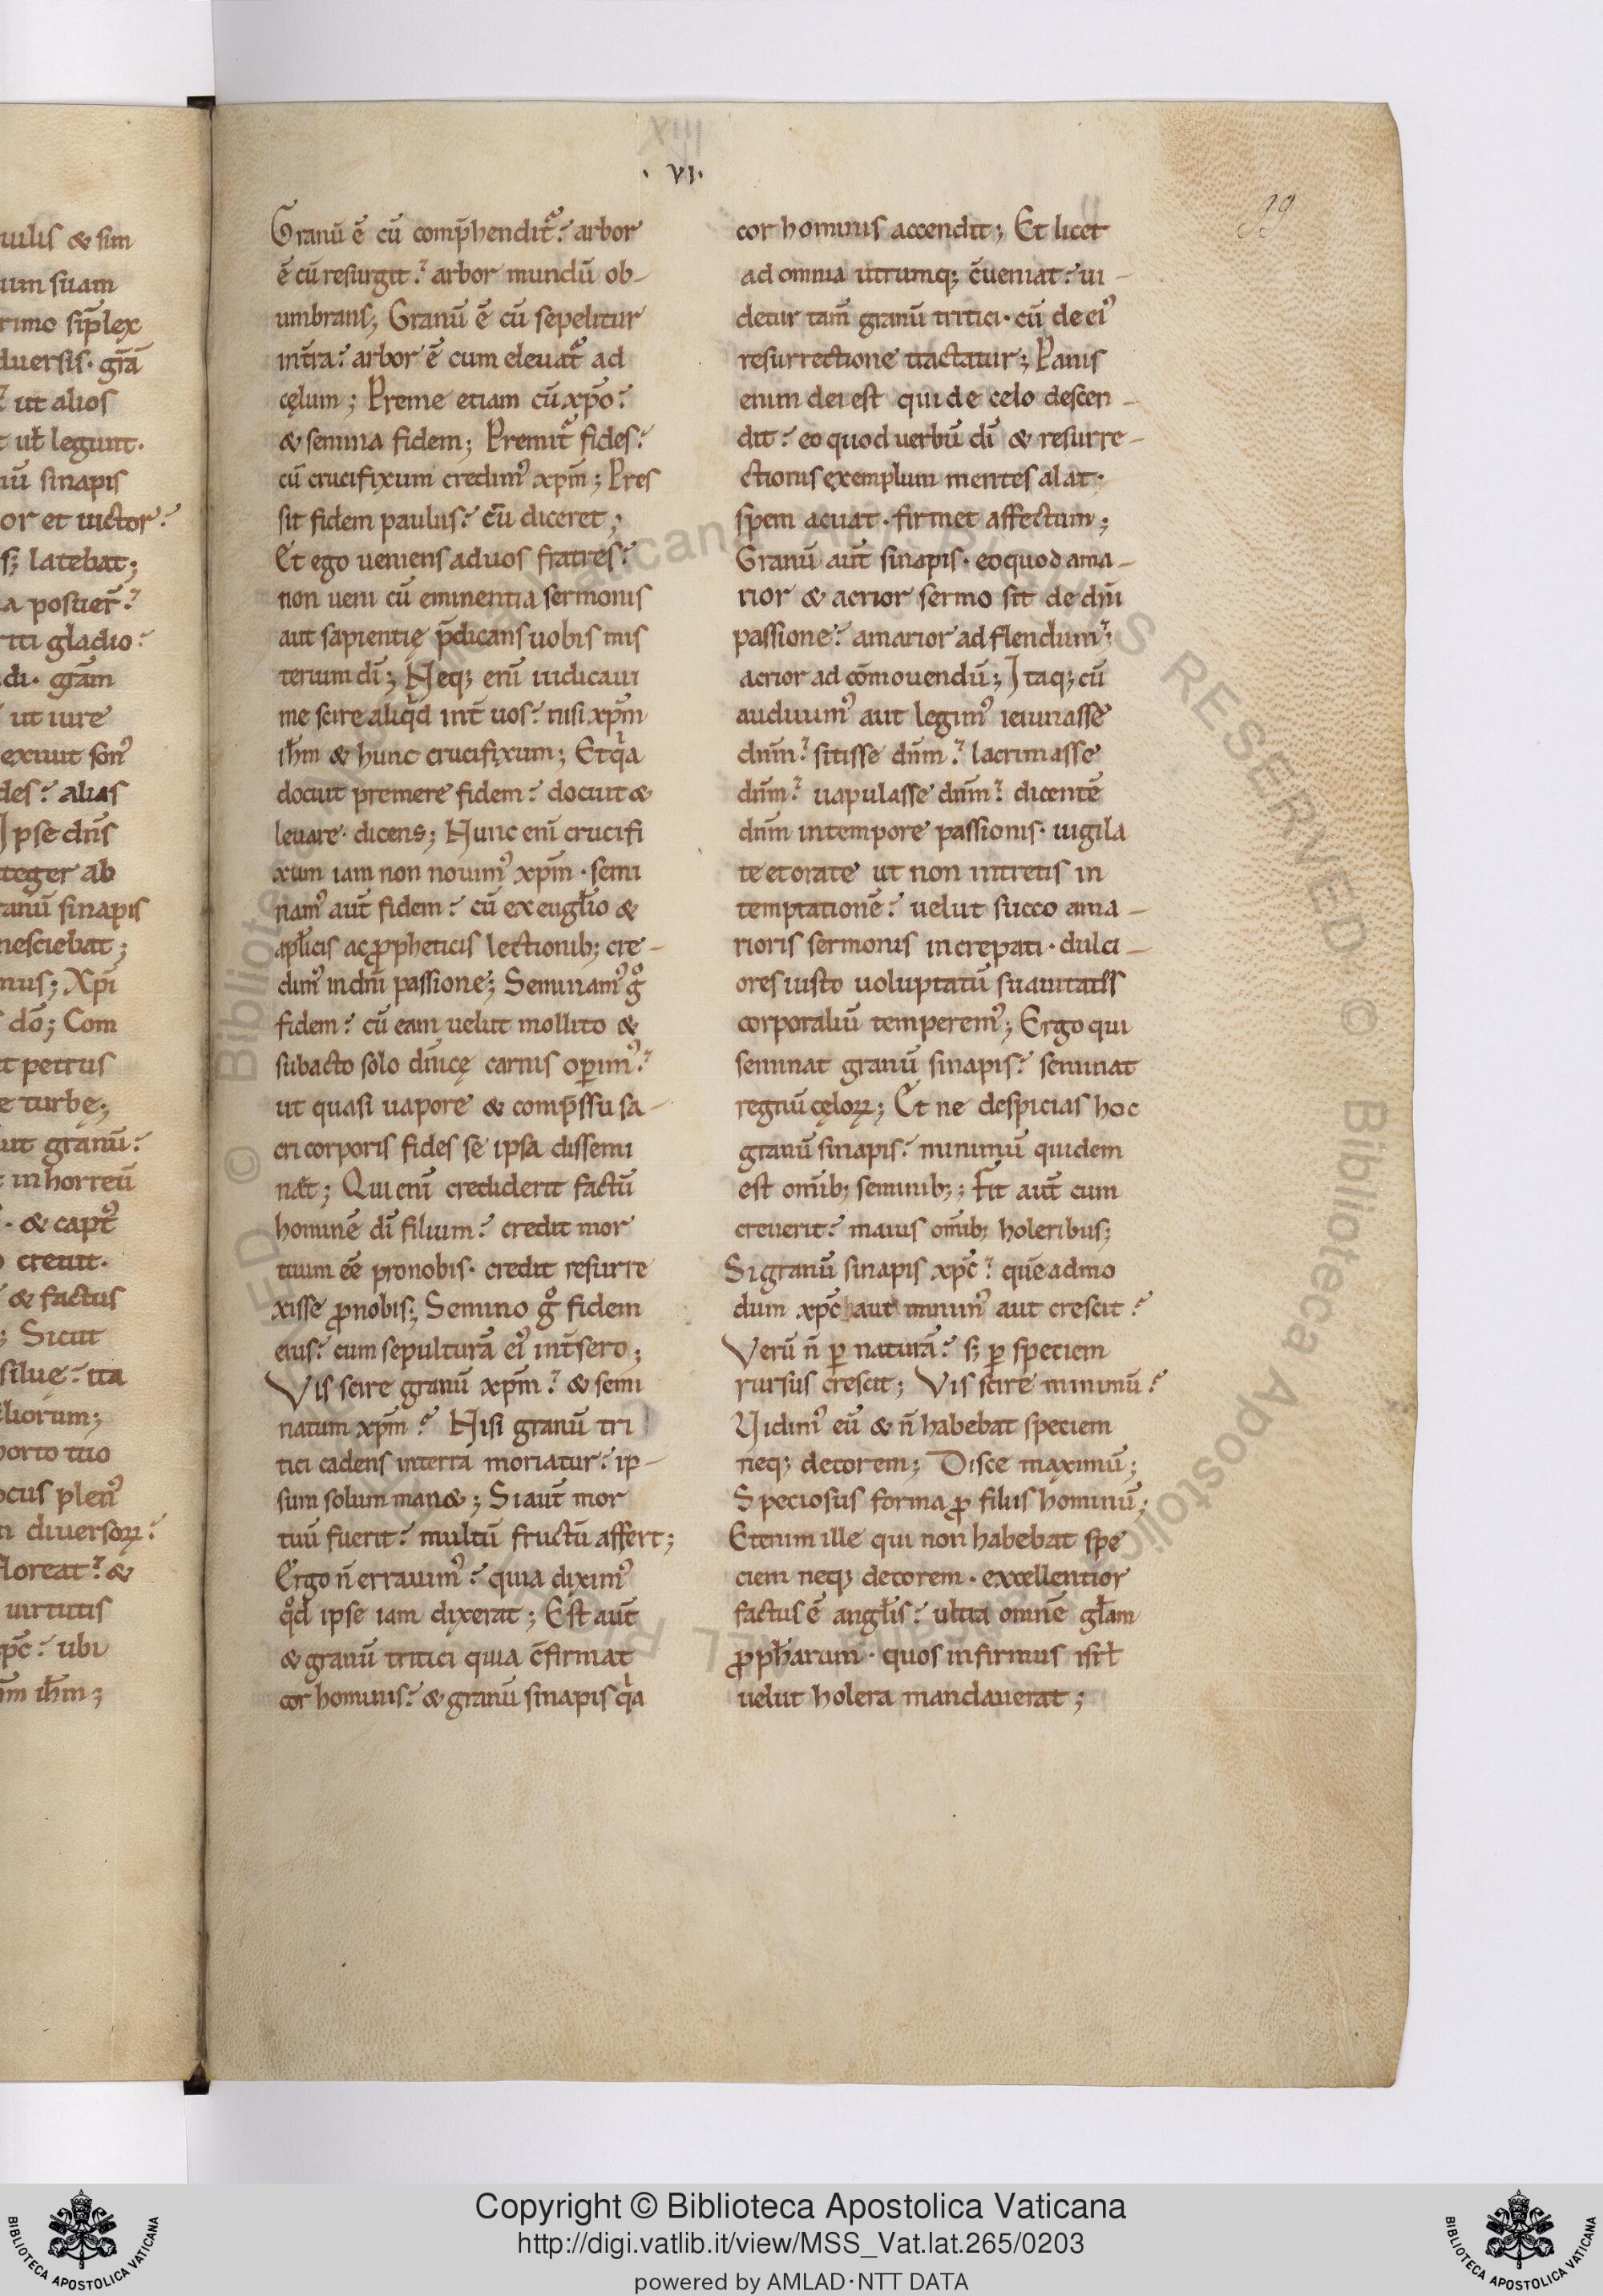 uulis & sim
um suam
rimo sip̄lex
duersis· gr̄a
ut alios
ut ut̄ legunt·
nū sinapis
or et uictor?
s; latebat;
a postier̄?
rti gladio?
di· gr̄am
ut iure
exnut son᾽
des? alias
Ipse dn̄s
teger ab
ranū sinapis
nesciebat;
nus; Xp̄i
dō; Com
t petrus
e turbę;
ut granū?
t in horreū
· & capt᷑
creuit·
& factus
; Sicut
siluę? ita
liorum;
horto tuo
ocus plen᾽
n diuersoꝝ?
floreat? &
uirtutis
xp̄c? ubi
um ih̄m;
XIII
· VI·
99
Granū ē cū comp̄hendit᷑? arbor
ē cū resurgit? arbor mundū ob-
umbrans; Granū ē cū sepelitur
int̄ra? arbor ē cum eleuat᷑ ad
cęlum; Preme etiam cū xp̄o?
& semina fidem; Premit᷑ fides?
cū crucifixum credim᾽ xp̄m; Pres
sit fidem paulus? cū diceret;
Et ego ueniens ad uos fratres?
non ueni cū eminentia sermonis
aut sapientię p̄dicans uobis mis
terium dī; Neq; enī iudicaui
me scire aliqd̄ int̄ uos? nisi xp̄m
ih̄m & hunc crucifixum; Et qa
docuit premere fidem? docuit &
leuare· dicens; Hunc enī crucifi
xum iam non nouim᾽ xp̄m· semi
nam᾽ aut̄ fidem? cū ex eugl̄io &
apl̄icis ac ꝓpheticis lectionib; cre-
dim᾽ in dnī passione; Seminam᾽ gͦ
fidem? cū eam uelut mollito &
subacto solo dn̄icę carnis operim᾽?
ut quasi uapore & comp̄ssu sa-
cri corporis fides se ipsa dissemi
n&; Qui enī crediderit factū
hominē dī filium? credit mor
tuum eē pro nobis· credit resurre
xisse ꝓ nobis; Semino gͦ fidem
eius? cum sepulturā ei᾽ int̄sero;
Vis scire granū xp̄m? & semi
natum xp̄m? Nisi granū tri
tici cadens in terra moriatur? ip-
sum solum man&; Si aut̄ mor
tuū fuerit? multū fructū affert;
Ergo n̄ errauim᾽? quia dixim᾽
qd̄ ipse iam dixerat; Est aut̄
& granū tritici quia c̄firmat
cor hominis? & granū sinapis qa
cor hominis accendit; Et licet
ad omnia utrumq; c̄ueniat? ui-
detur tam̄ granū tritici· cū de ei᾽
resurrectione tractatur; Panis
enim dei est qui de celo descen-
dit? eo quod uerbū dī & resurre-
ctionis exemplum mentes alat·
spem acuat· firmet affectum;
Granū aut̄ sinapis· eo quod ama-
rior & acrior sermo sit de dn̄i
passione? amarior ad flendum?
acrior ad cōmouendū; Itaq; cū
audiuim᾽ aut legim᾽ ieiunasse
dn̄m? sitisse dn̄m? lacrimasse
dn̄m? uapulasse dn̄m? dicentē
dn̄m in tempore passionis· uigila
te et orate ut non intretis in
temptationē? uelut succo ama-
rioris sermonis increpati· dulci-
ores iusto uoluptatū suauitates
corporaliū temperem᾽; Ergo qui
seminat granū sinapis? seminat
regnū cęloꝝ; Et ne despicias hoc
granū sinapis? minimū quidem
est om̄ib; seminib;; Fit aut̄ cum
creuerit? maius om̄ib; holeribus;
Si granū sinapis xp̄c? quēadmo
dum xp̄c aut minim᾽ aut crescit?
Verū n̄ ꝑ naturā? s; ꝑ speciem
rursus crescit; Vis scire minimū?
Vidim᾽ eū & n̄ habebat speciem
neq; decorem; Disce maximū;
Speciosus forma ꝓ filiis hominū;
Etenim ille qui non habebat spe
ciem neq; decorem· excellentior
factus ē angl̄is? ultra omnē gl̄am
ꝓph̄arum· quos infirmus isrl̄
uelut holera manducauerat;
Copyright © Biblioteca Apostolica Vaticana
http://digi.vatlib.it/view/MSS_Vat.lat.265/0203
powered by AMLAD·NTT DATA
BIBLIOTECA APOSTOLICA VATICANA
BIBLIOTECA APOSTOLICA VATICANA